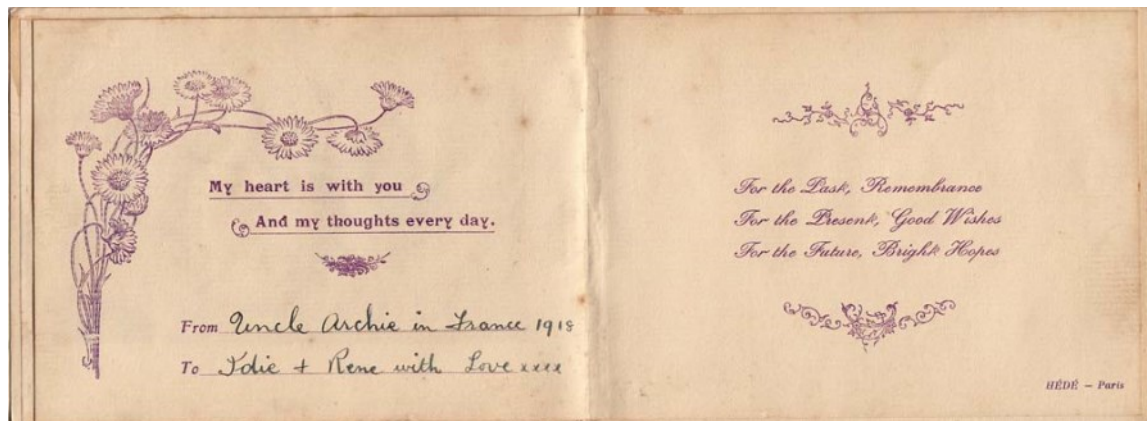 My heart is with you
And my thoughts every day.
From Uncle Archie in France 1918
To Idie + Rene with Love xxxx
For the Past, Remembrance
For the Present, Good Wishes
For the Future, Bright Hopes
HÉDÉ – Paris